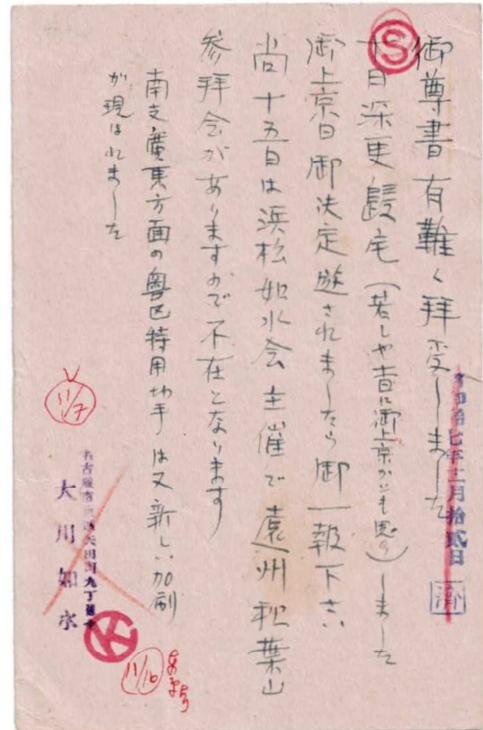 御尊書有難く拝受しました
十日深更帰宅（若しや者に御上京かとも思ひ）しました
御上京日御決定遊されましたら御一報下さい
尚十五日は浜松如水会主催で遠州秋葉山
参拝会がありますので不在となります
南支廣東方面の粤区特用切手は又新しい加刷
が現はれました
月拾貳日
済
名古屋市
矢田町九丁目
大川如水
S
K
11/7
11/16